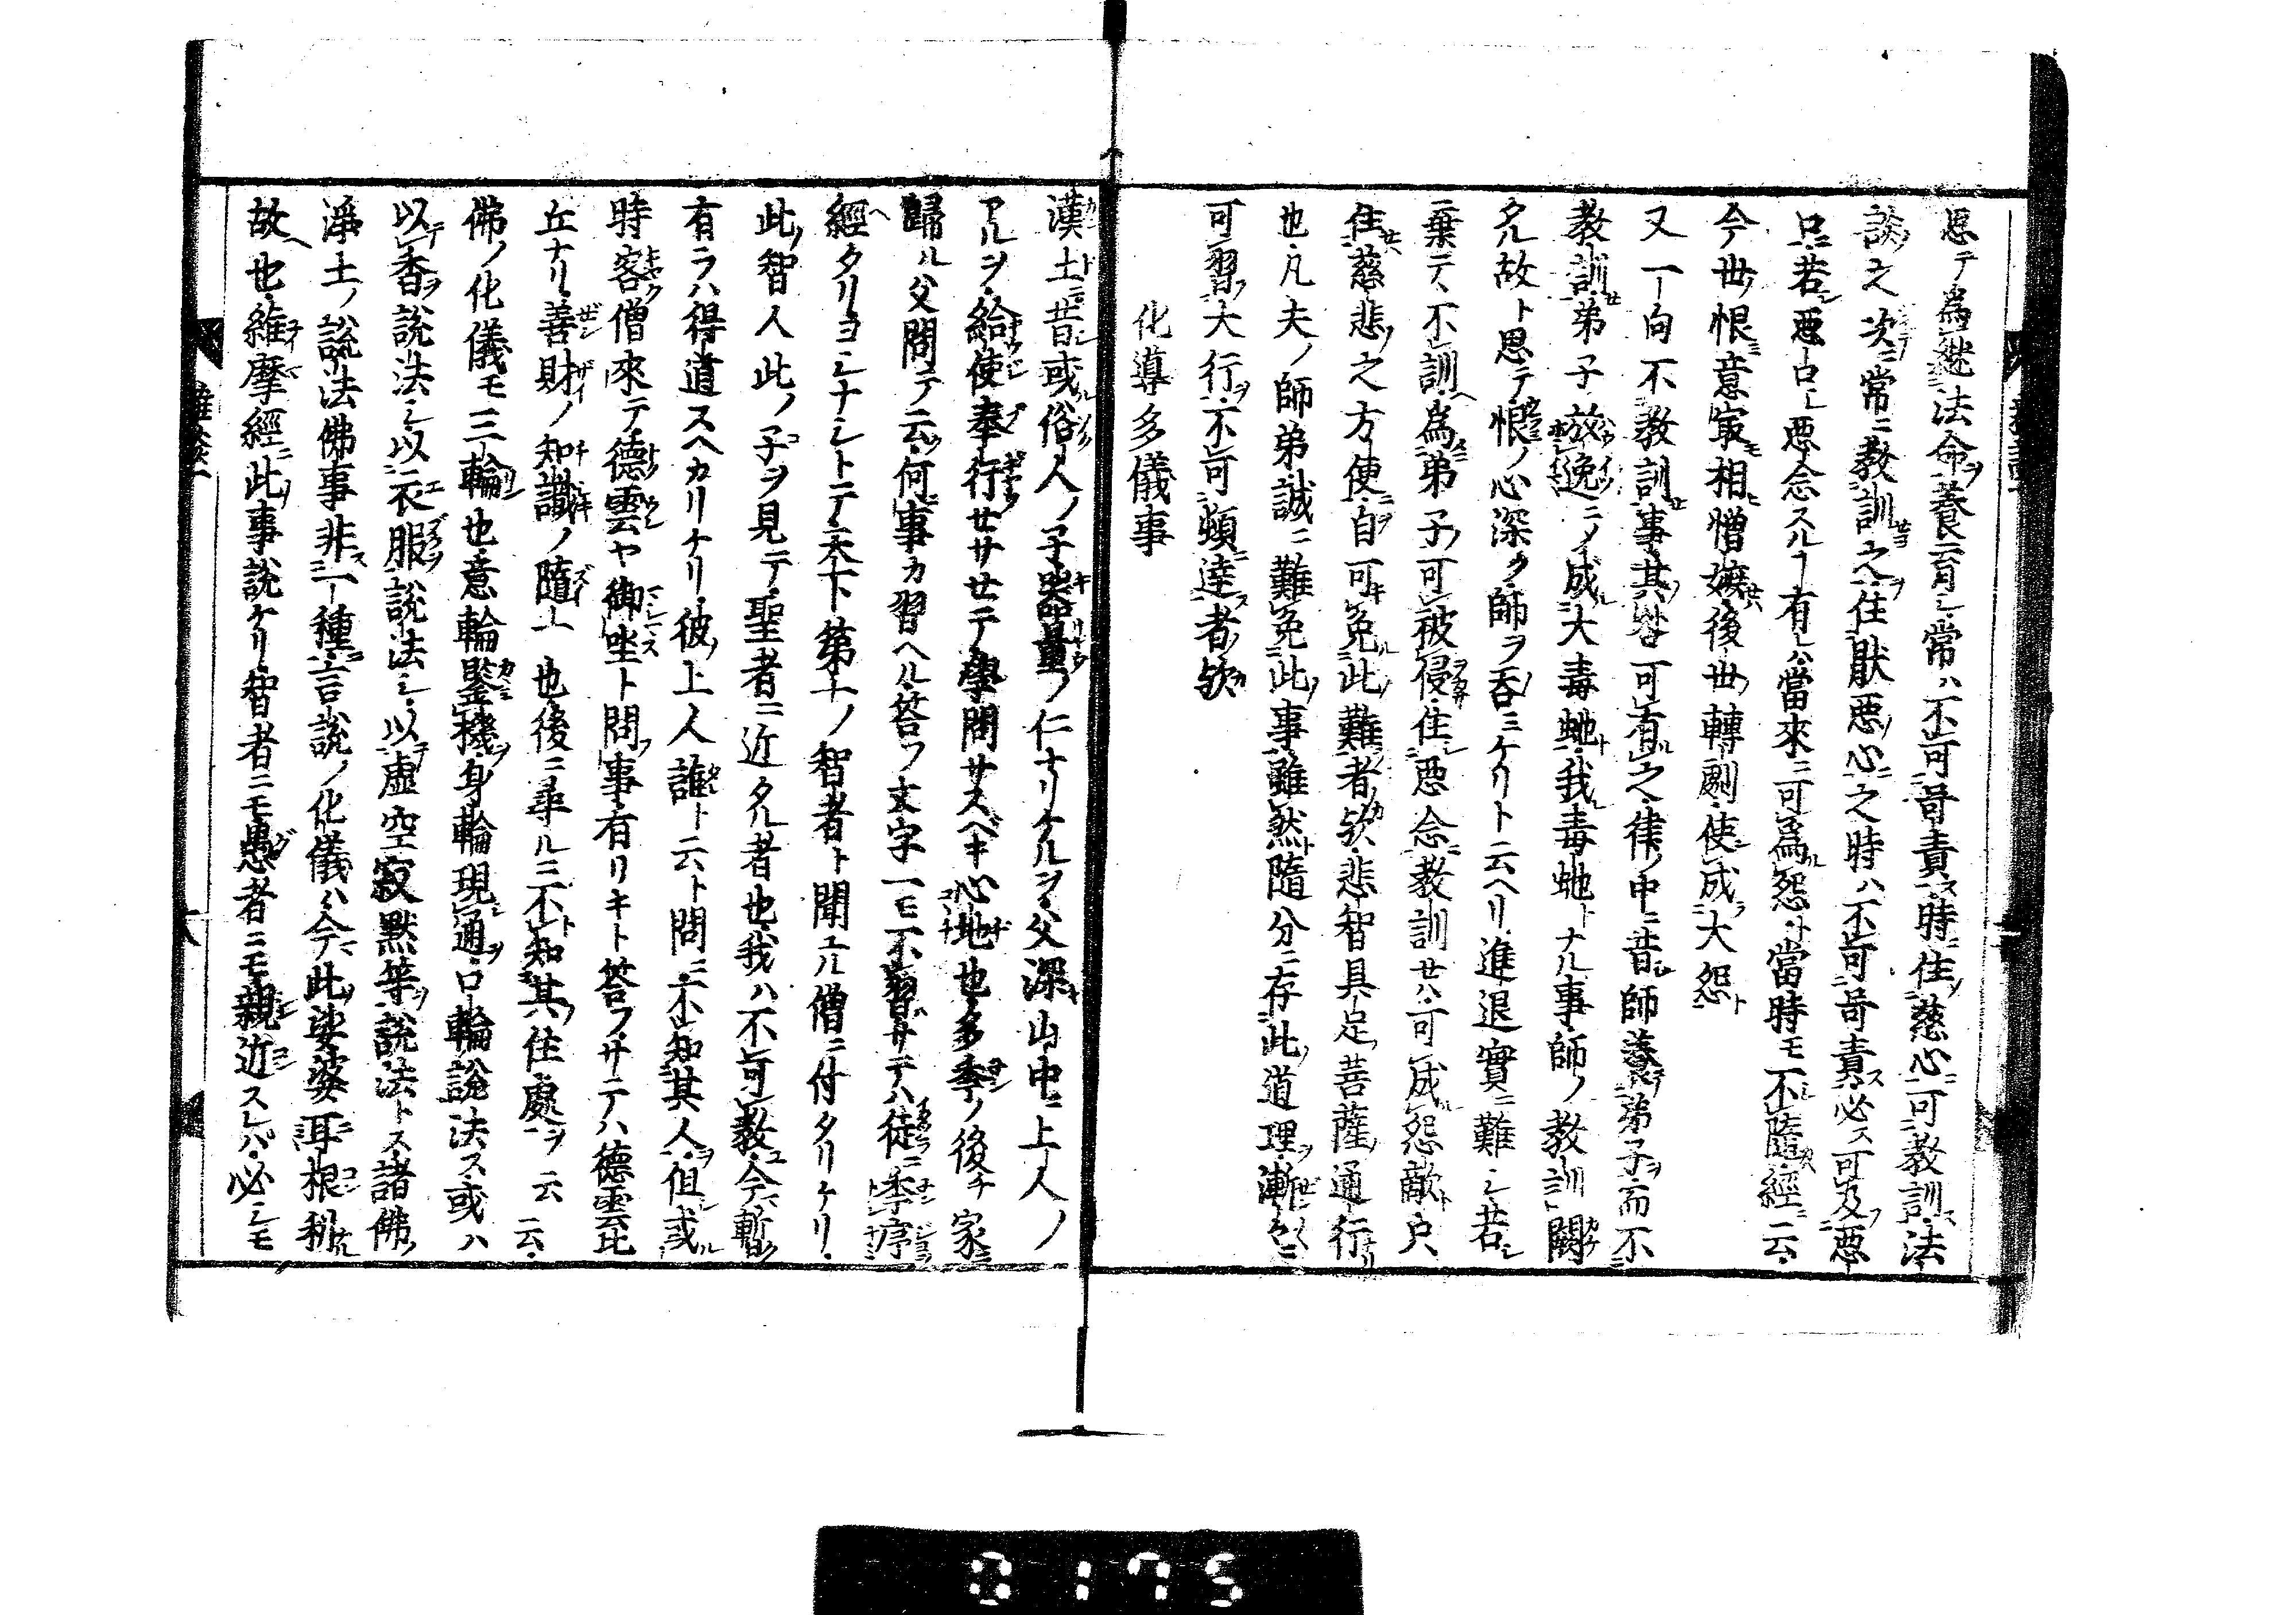 思テ為継法命ヲ養育シ常ハ不可呵責ス時住慈心ニ可教訓ス法
談之次ニ常ニ教訓セヨ之ヲ住猒悪心ニ之時ハ不可呵責ス必ス可及悪
口ニ若シ悪口シ悪念スルヿ有レハ當來ニ可為ル怨ト當時モ不隨ハ經ニ云
今世ノ恨意寂モ相憎嫉セハ後世ノ轉劇使成大怨ト
又一向不教訓セ事其咎可有ル之律ノ中ニ昔シ師養テ弟子ヲ而不
教訓セ弟子放逸ニノ成ル大毒虵ト我レ毒虵トナル事師ノ教訓闕
タル故ト思テ恨ノ心深ク師ヲ呑ミケリト云ヘリ進退實ニ難シ若シ
棄テ不訓ヘ為ニ弟子ノ可被侵サ住シ悪念ニ教訓セハ可成ル怨敵ト只
住セハ慈悲ノ之方便ニ自ヲ可キ免ル此難ノ者欤悲智具足ノ菩薩ノ通行ナリ
也凡夫ノ師弟誠ニ難免此ノ事雖然ト隨分ニ存此ノ道理ヲ漸々ニ
可習フ大行ヲ不可頻ニ違ス者ノ欤
化導多儀事
漢土ニ昔シ或ル俗人ノ子器量ノ仁ナリケルヲ父深キ山中ニ上人ノ
アルヲ給使奉行セサセテ學問サスベキ心地也多季ノ後チ家ニ
歸ル父問テ云ク何事カ習ヘル答フ文字一モ不習サテハ徒ニ季序
經ヘタリヨシナシトテ天下第一ノ智者ト聞エル僧ニ付タリケリ
此ノ智人此ノ子ヲ見テ聖者ニ近タル者也我ハ不可教ユ今ハ暫ク
有ラハ得道スヘカリケリ彼ノ上人誰ト云ト問ニ不知其人ヲ但シ或ル
時客僧來テ德雲ヤ御坐ト問フ事有リキト答フサテハ德雲比
丘ナリ善財ノ知識ノ隨一也後ニ尋ルニ不ト知其ノ住處ヲ云云
佛ノ化儀モ三輪也意輪鑒機ヲ身輪現通ヲ口輪說法ス或ハ
以テ香ヲ說法シ以衣服ヲ說法シ以虛空寂默等ヲ說法トス諸佛ノ
淨土ノ說法佛事非ス一種ニ言說ノ化儀ハ今此ノ娑婆耳根利ナル
故ヘ也維摩經ニ此ノ事說ケリ智者ニモ愚者ニモ親近スレバ必シモ
雜談
六
0175